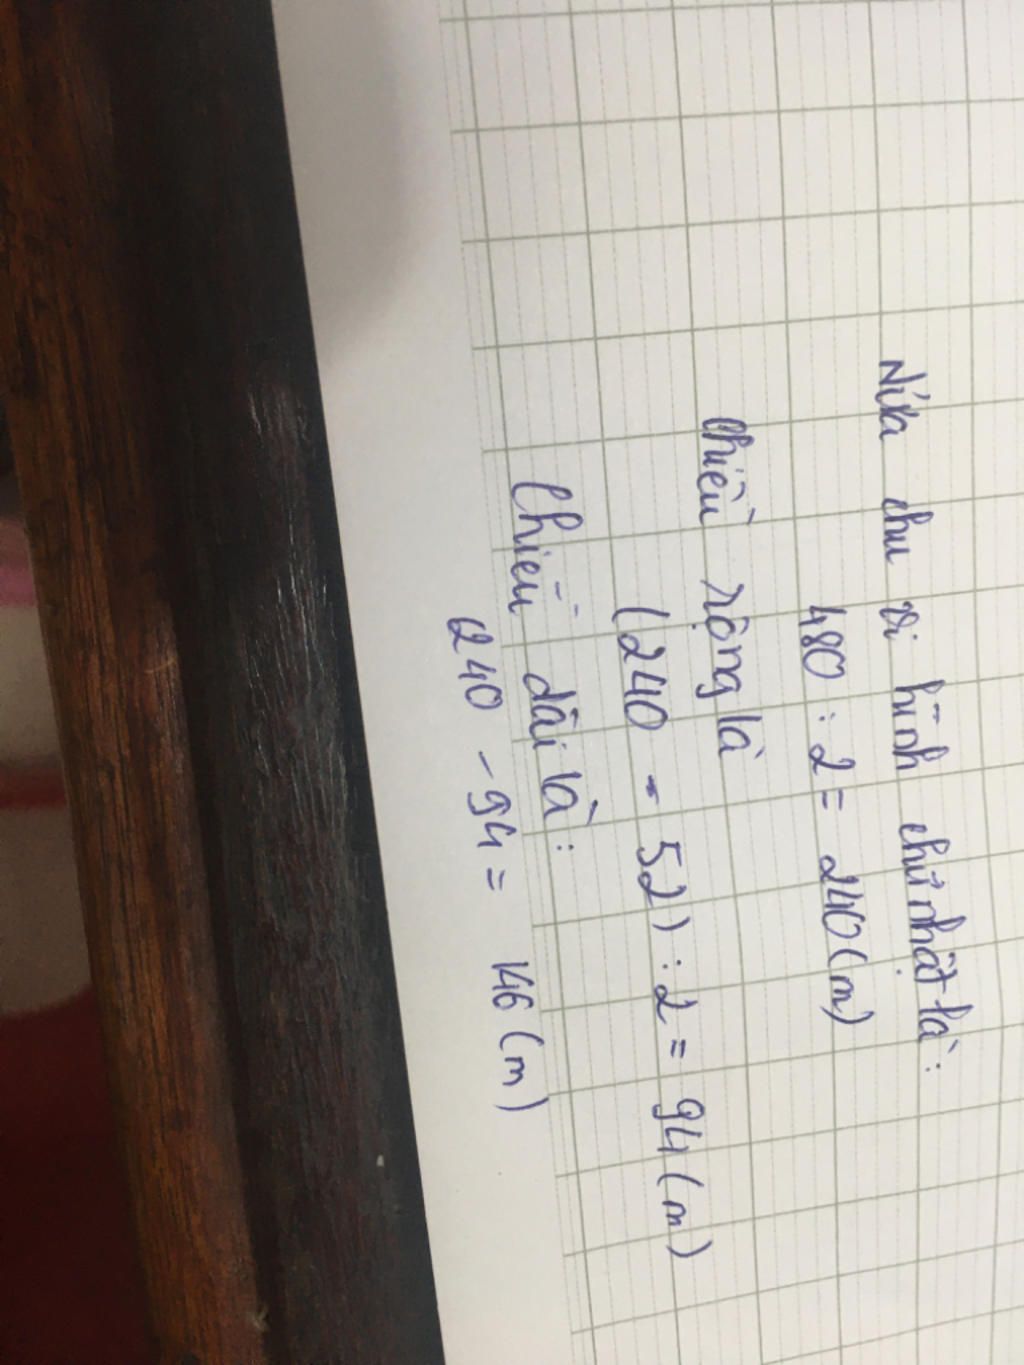 Nửa chu vi hình chữ nhật là:
480 : 2 = 240 (m)
Chiều rộng là
(240 - 52) : 2 = 94 (m)
Chiều dài là:
240 - 94 = 146 (m)